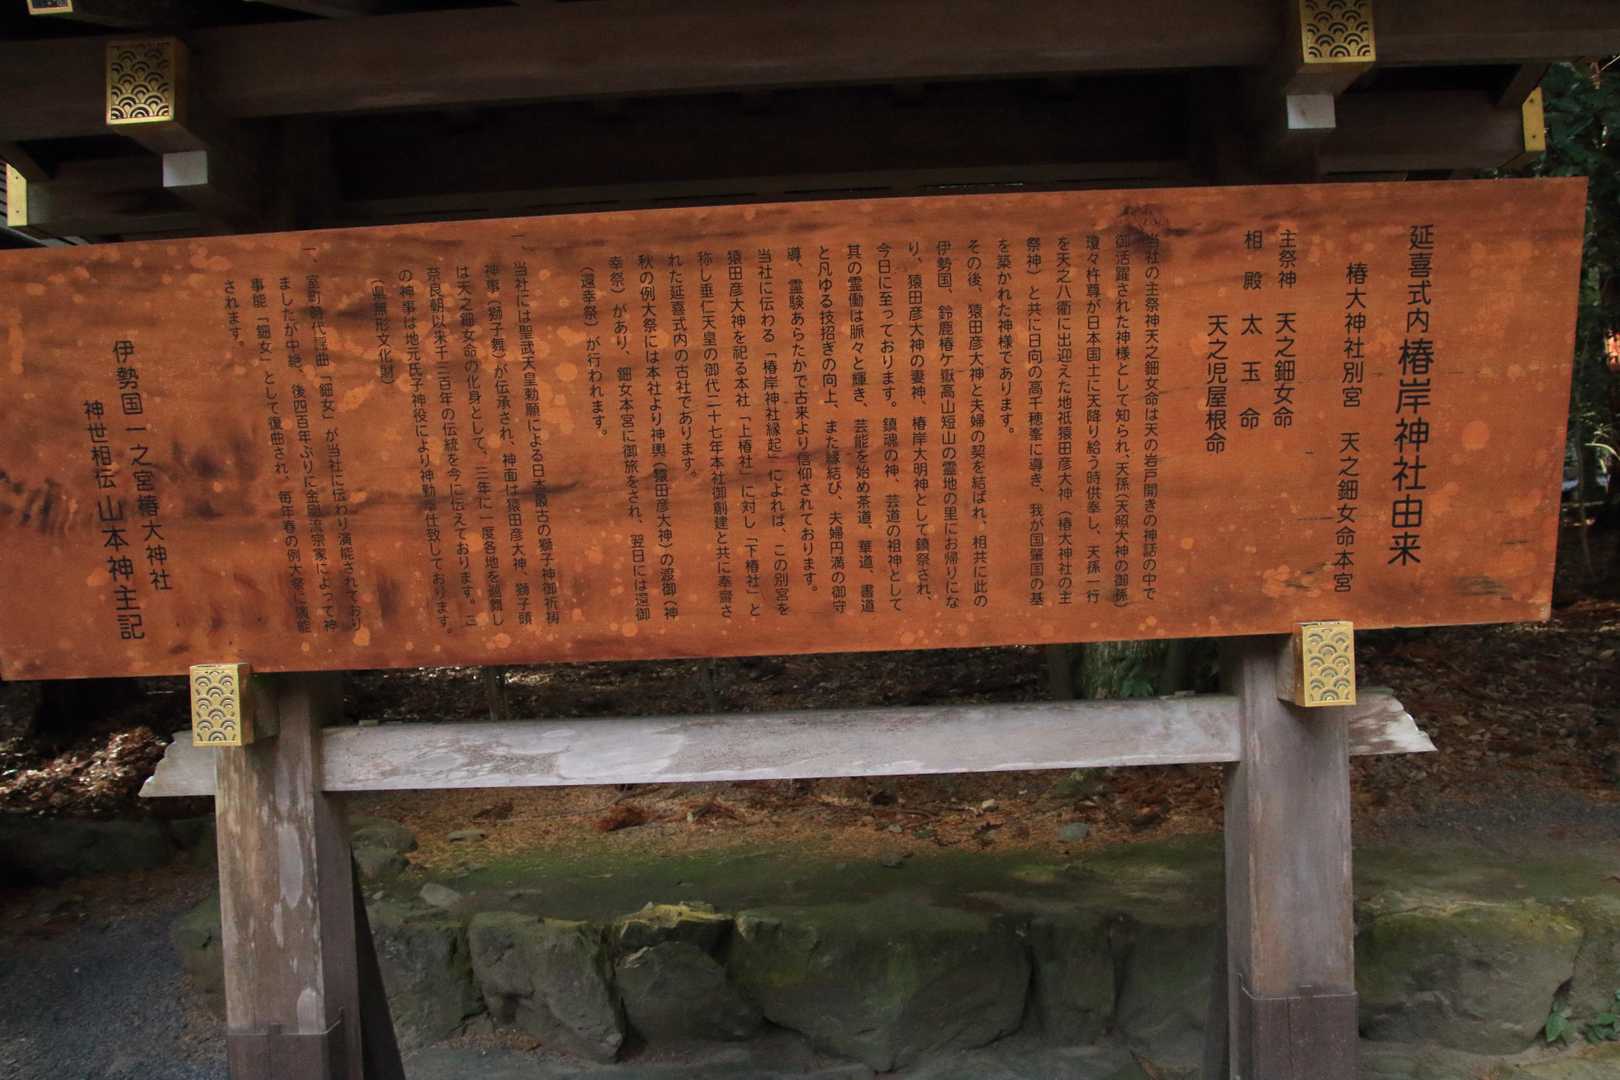 延喜式内 椿岸神社由来
椿大神社別宮　天之鈿女命本宮
主祭神　天之鈿女命
相殿　太玉命
天之児屋根命
当社の主祭神天之鈿女命は天の岩戸開きの神話の中で
御活躍された神様として知られ、天孫（天照大神の御孫）
瓊々杵尊が日本国土に天降り給う時供奉し、天孫一行
を天之八衢に出迎えた地祇猿田彦大神（椿大神社の主
祭神）と共に日向の高千穂峯に導き、我が国肇国の基
を築かれた神様であります。
その後、猿田彦大神と夫婦の契を結ばれ、相共に此の
伊勢国、鈴鹿椿ケ嶽高山短山の霊地の里にお帰りにな
り、猿田彦大神の妻神、椿岸大明神として鎮祭され、
今日に至っております。鎮魂の神、芸道の祖神として
其の霊働は脈々と輝き、芸能を始め茶道、華道、書道
と凡ゆる技招ぎの向上、また縁結び、夫婦円満の御守
導、霊験あらたかで古来より信仰されております。
当社に伝わる「椿岸神社縁起」によれば、この別宮を
猿田彦大神を祀る本社「上椿社」に対し「下椿社」と
称し垂仁天皇の御代二十七年本社御創建と共に奉齋さ
れた延喜式内の古社であります。
秋の例大祭には本社より神輿（猿田彦大神）の渡御（神
幸祭）があり、鈿女本宮に御旅をされ、翌日には還御
（還幸祭）が行われます。
一、当社には聖武天皇勅願による日本最古の獅子神御祈祷
神事（獅子舞）が伝承され、神面は猿田彦大神、獅子頭
は天之鈿女命の化身として、三年に一度各地を廻舞し
奈良朝以来千三百年の伝統を今に伝えております。こ
の神事は地元氏子神役により神勤奉仕致しております。
（県無形文化財）
一、室町時代謡曲「鈿女」が当社に伝わり演能されており
ましたが中絶、後四百年ぶりに金剛流宗家によって神
事能「鈿女」として復曲され、毎年春の例大祭に演能
されます。
伊勢国一之宮椿大神社
神世相伝 山本神主記